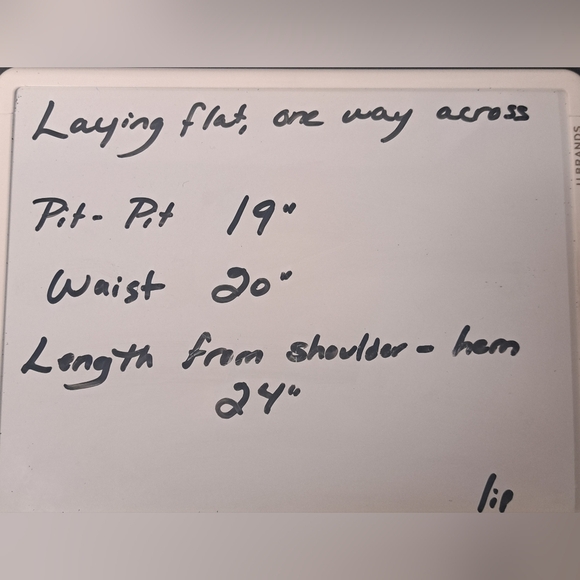 Laying flat, one way across
Pit - Pit 19"
Waist 20"
Length from shoulder - hem
24"
lip
U BRANDS